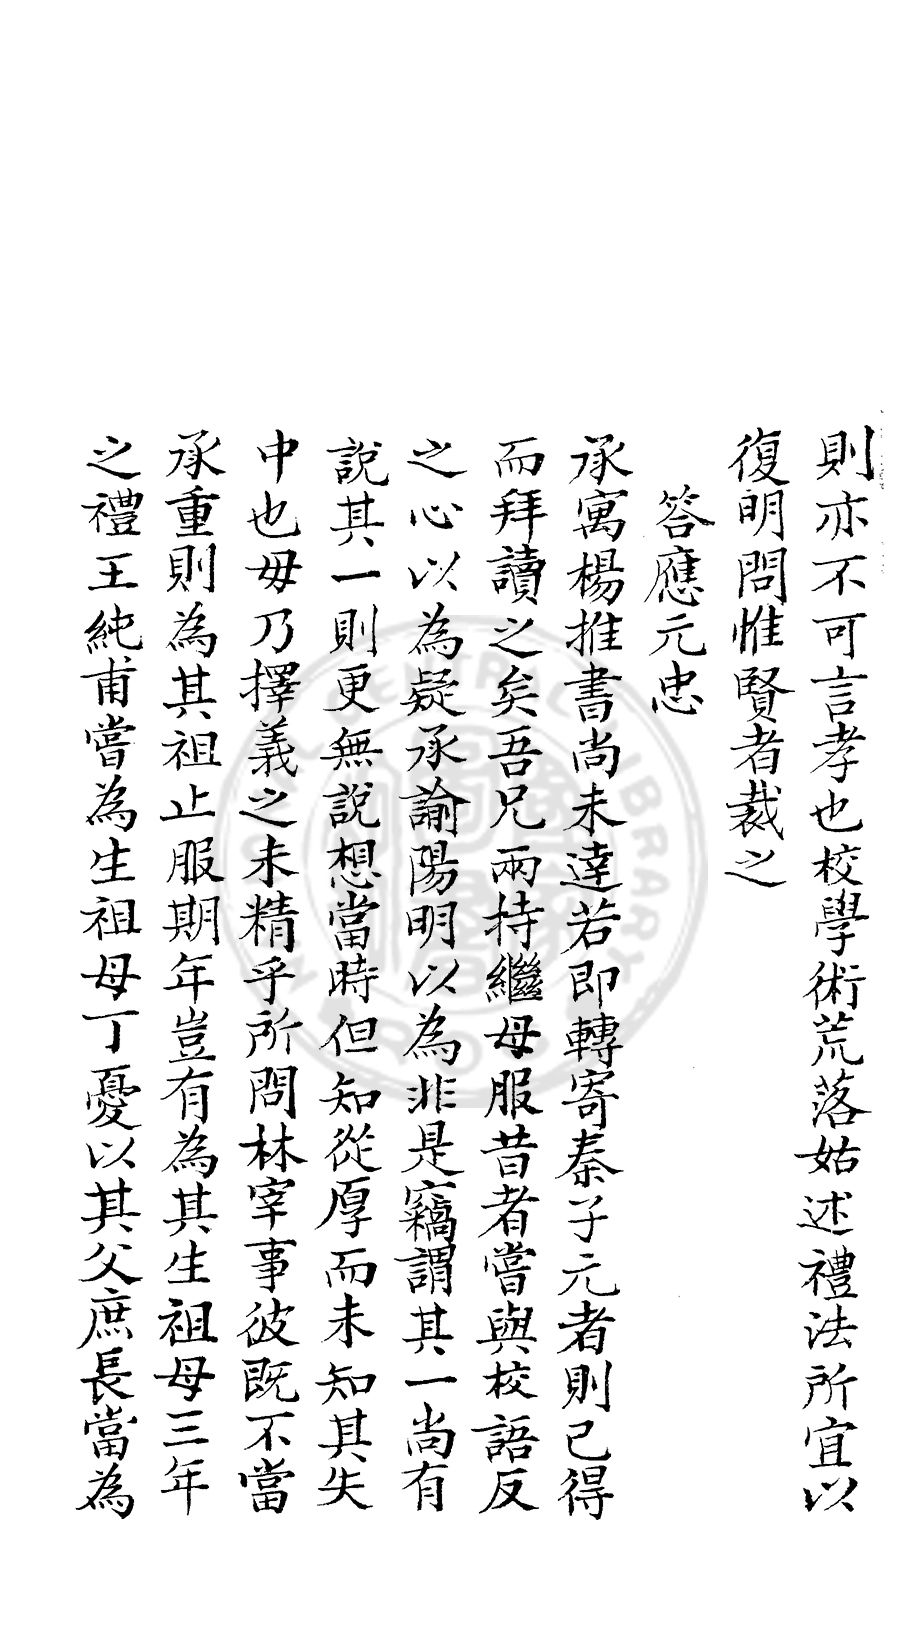 則亦不可言孝也校學術荒落姑述禮法所宜以
復明問惟賢者裁之
答應元忠
承寓楊推書尚未達若即轉寄秦子元者則已得
而拜讀之矣吾兄兩持繼母服昔者嘗與校語反
之心以為疑承諭陽明以為非是竊謂其一尚有
說其一則更無說想當時但知從厚而未知其失
中也毋乃擇義之未精乎所問林宰事彼既不當
承重則為其祖止服期年豈有為其生祖母三年
之禮王純甫嘗為生祖母丁憂以其父庶長當為